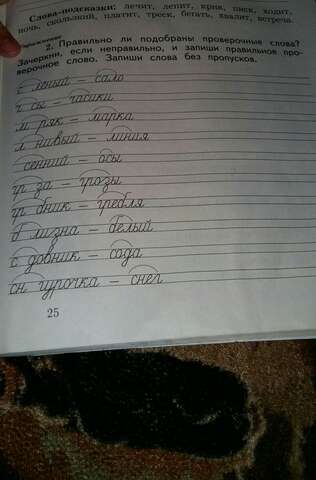 Слова-подсказки: лечит, лепит, крик, писк, ходит,
ночь, скользкий, платит, треск, бегать, хвалит, встреча.
2. Правильно ли подобраны проверочные слова?
Зачеркни, если неправильно, и запиши правильное про-
верочное слово. Запиши слова без пропусков.
с леный – сало
ч сы – часики
м ряк – марка
л нивый – линия
сенний – осы
гр за – грозы
гр бник – гребля
б лизна – белый
с довник – сода
сн гурочка – снег
25